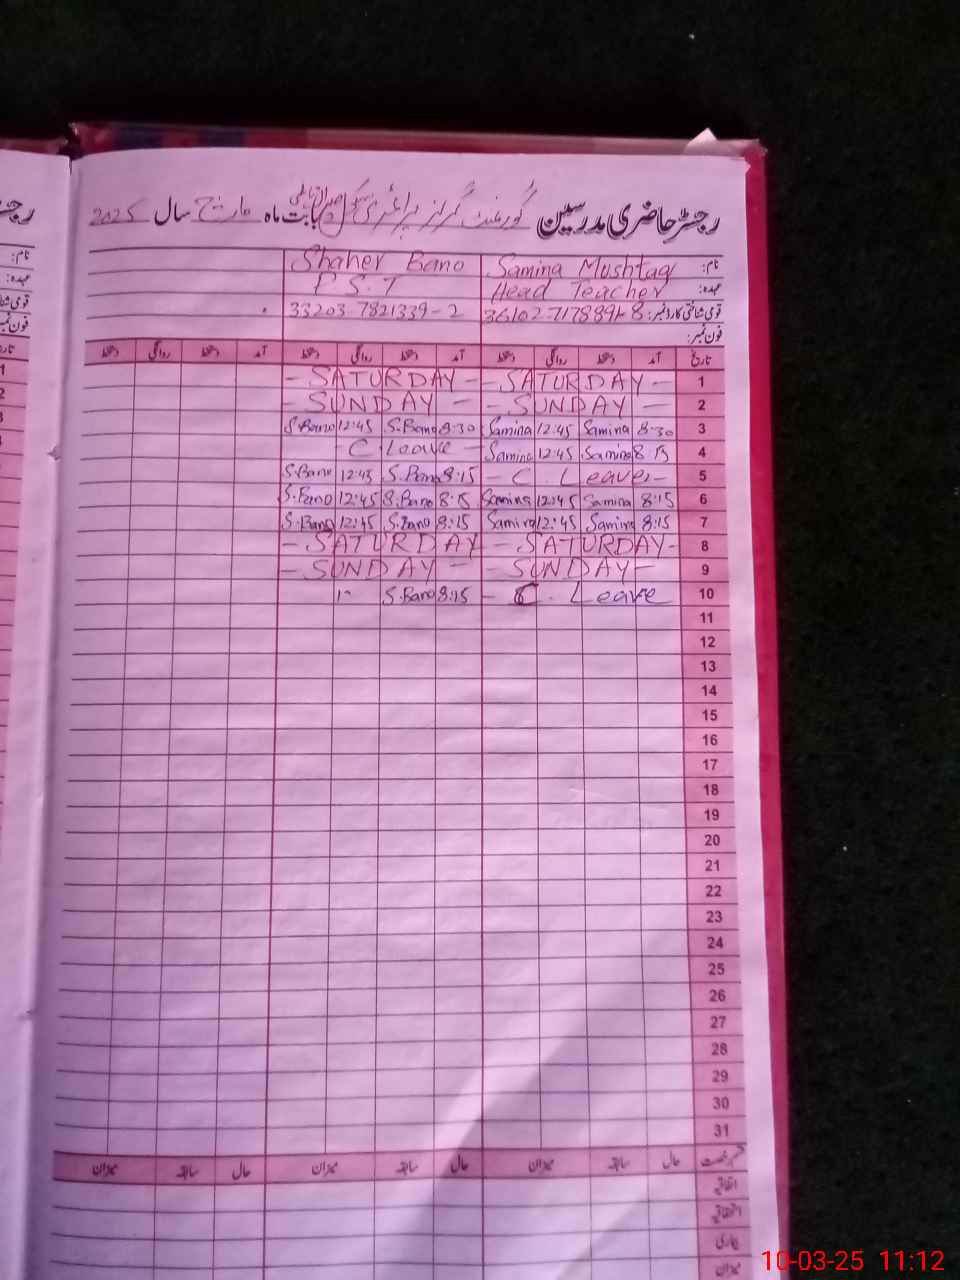 رجسٹر حاضری مدرسین گورنمنٹ گرلز پرائمری سکول بابت ماہ مارچ سال 2025
نام: Samina Mushtaq Shaher Bano
عہدہ: Head Teacher P.S.T
قومی شناختی کارڈ نمبر: 36102-7178891-8 33203-7821339-2
فون نمبر:
تاریخ آمد دستخط روانگی دستخط آمد دستخط روانگی دستخط آمد دستخط روانگی دستخط
1 - SATURDAY - - SATURDAY -
2 - SUNDAY - - SUNDAY -
3 8:30 Samina 12:45 Samina 8:30 S.Bano 12:45 S.Bano
4 8:15 Samina 12:45 Samina - C. Leave -
5 - C. Leave - 8:15 S.Bano 12:45 S.Bano
6 8:15 Samina 12:45 Samina 8:15 S.Bano 12:45 S.Bano
7 8:15 Samina 12:45 Samina 8:15 S.Bano 12:45 S.Bano
8 - SATURDAY - - SATURDAY
9 - SUNDAY - - SUNDAY -
10 - C. Leave 8:15 S.Bano
11
12
13
14
15
16
17
18
19
20
21
22
23
24
25
26
27
28
29
30
31
قسم رخصت حال سابقہ میزان حال سابقہ میزان حال سابقہ میزان
اتفاقیہ
استحقاقیہ
بیماری
میزان
10-03-25 11:12